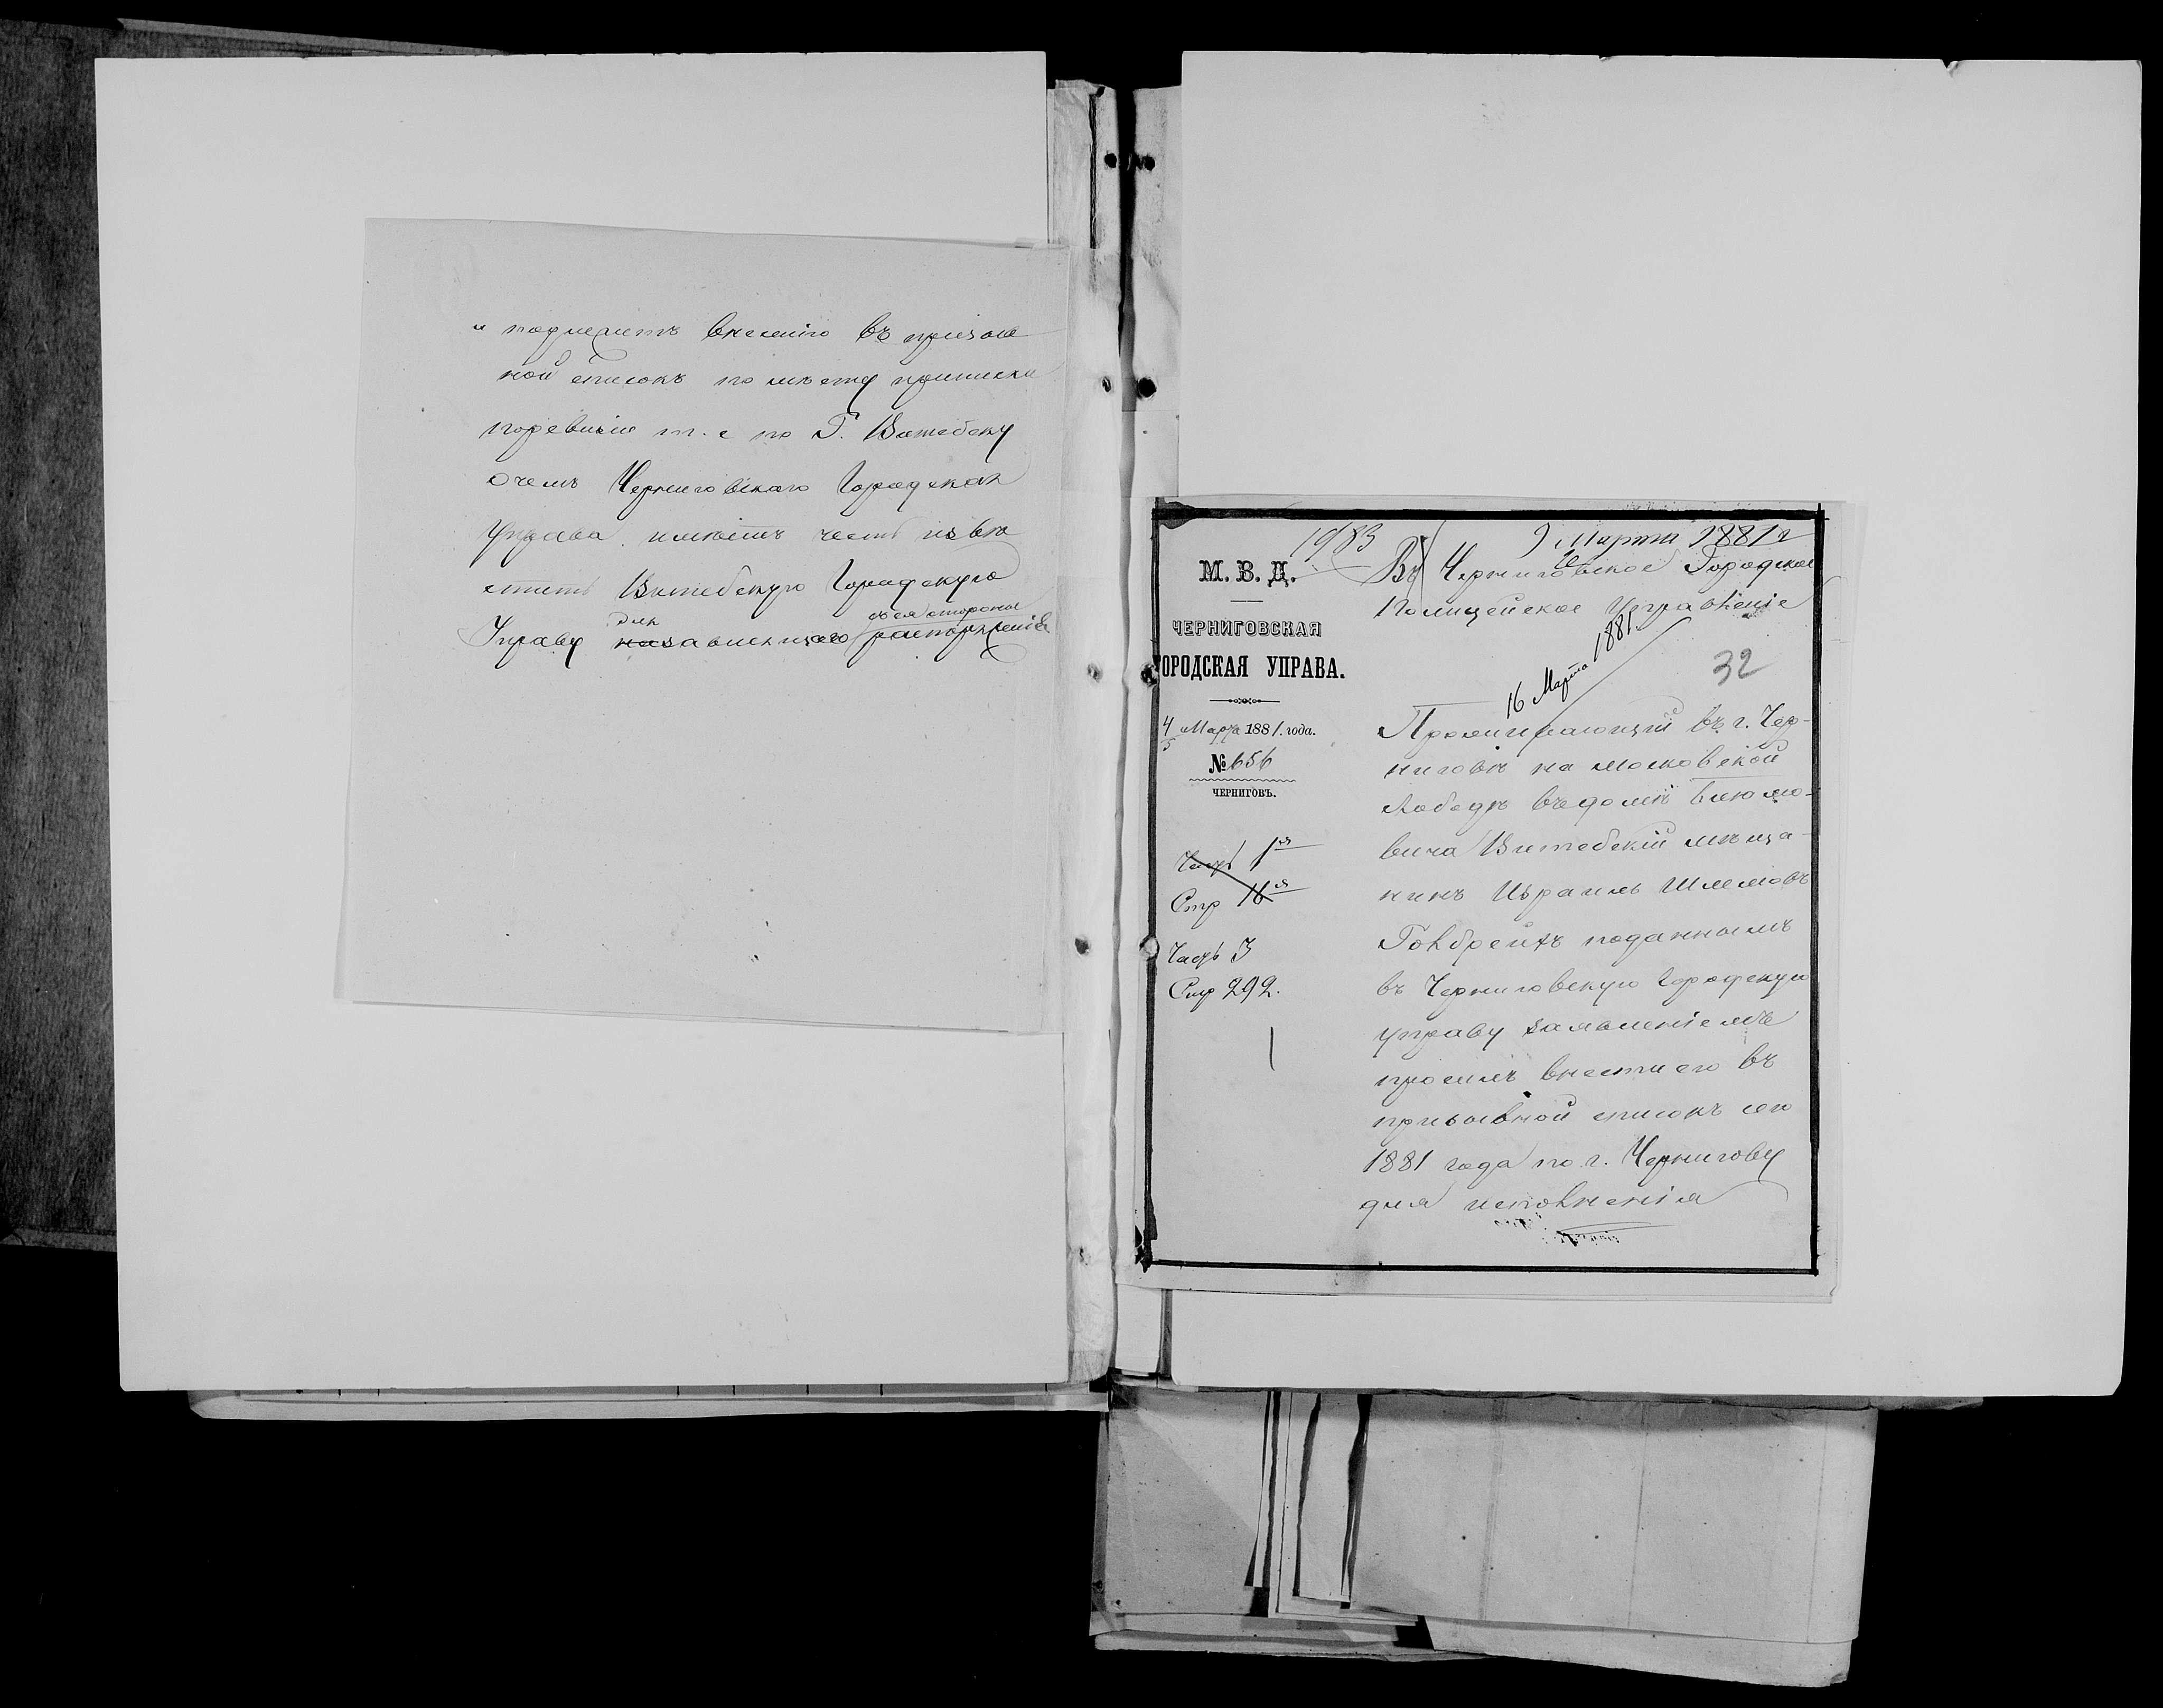 и подлежитъ внесенію въ призыв
ной списокъ по мѣсту приписки
поревизіи т. е по Г. Витебску
очемъ Черниговская Городская
Управа имѣетъ честь извѣ
стить Витебскую Городскую
для съея стороны
Управу на зависящаго распоряженія
1983
9 Марта 1881 г
М. В. Д.
Въ Черниговское Городское
Полицейское Управленіе
ЧЕРНИГОВСКАЯ
ГОРОДСКАЯ УПРАВА.
16 Марта 1881.
32
4/5 Марта 1881. года.
№ 656
ЧЕРНИГОВЪ.
Часть 1я
Стр 16я
Часть 3
Стр 292.
Проживающій въ г. Чер-
ниговѣ на Московской
слободѣ въ домѣ Блюмо-
вича Витебскій мѣща-
нинъ Израиль Шлемовъ
поданнымъ
въ Черниговскую Городскую
управу заявленіемъ
просилъ внести его въ
призывной списокъ сего
1881 года по г. Чернигову
для исполненія